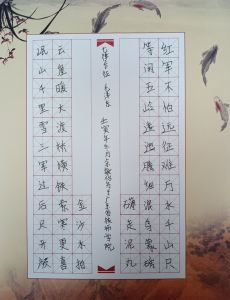 红军不怕远征难万水千山只
等闲五岭逶迤腾细浪乌蒙磅
礴走泥丸
七律长征 毛泽东
金沙水拍
云崖暖大渡桥横铁索寒更喜
岷山千里雪三军过后尽开颜